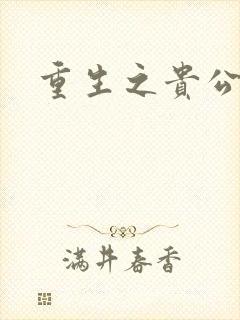 重生之貴公
满井春香